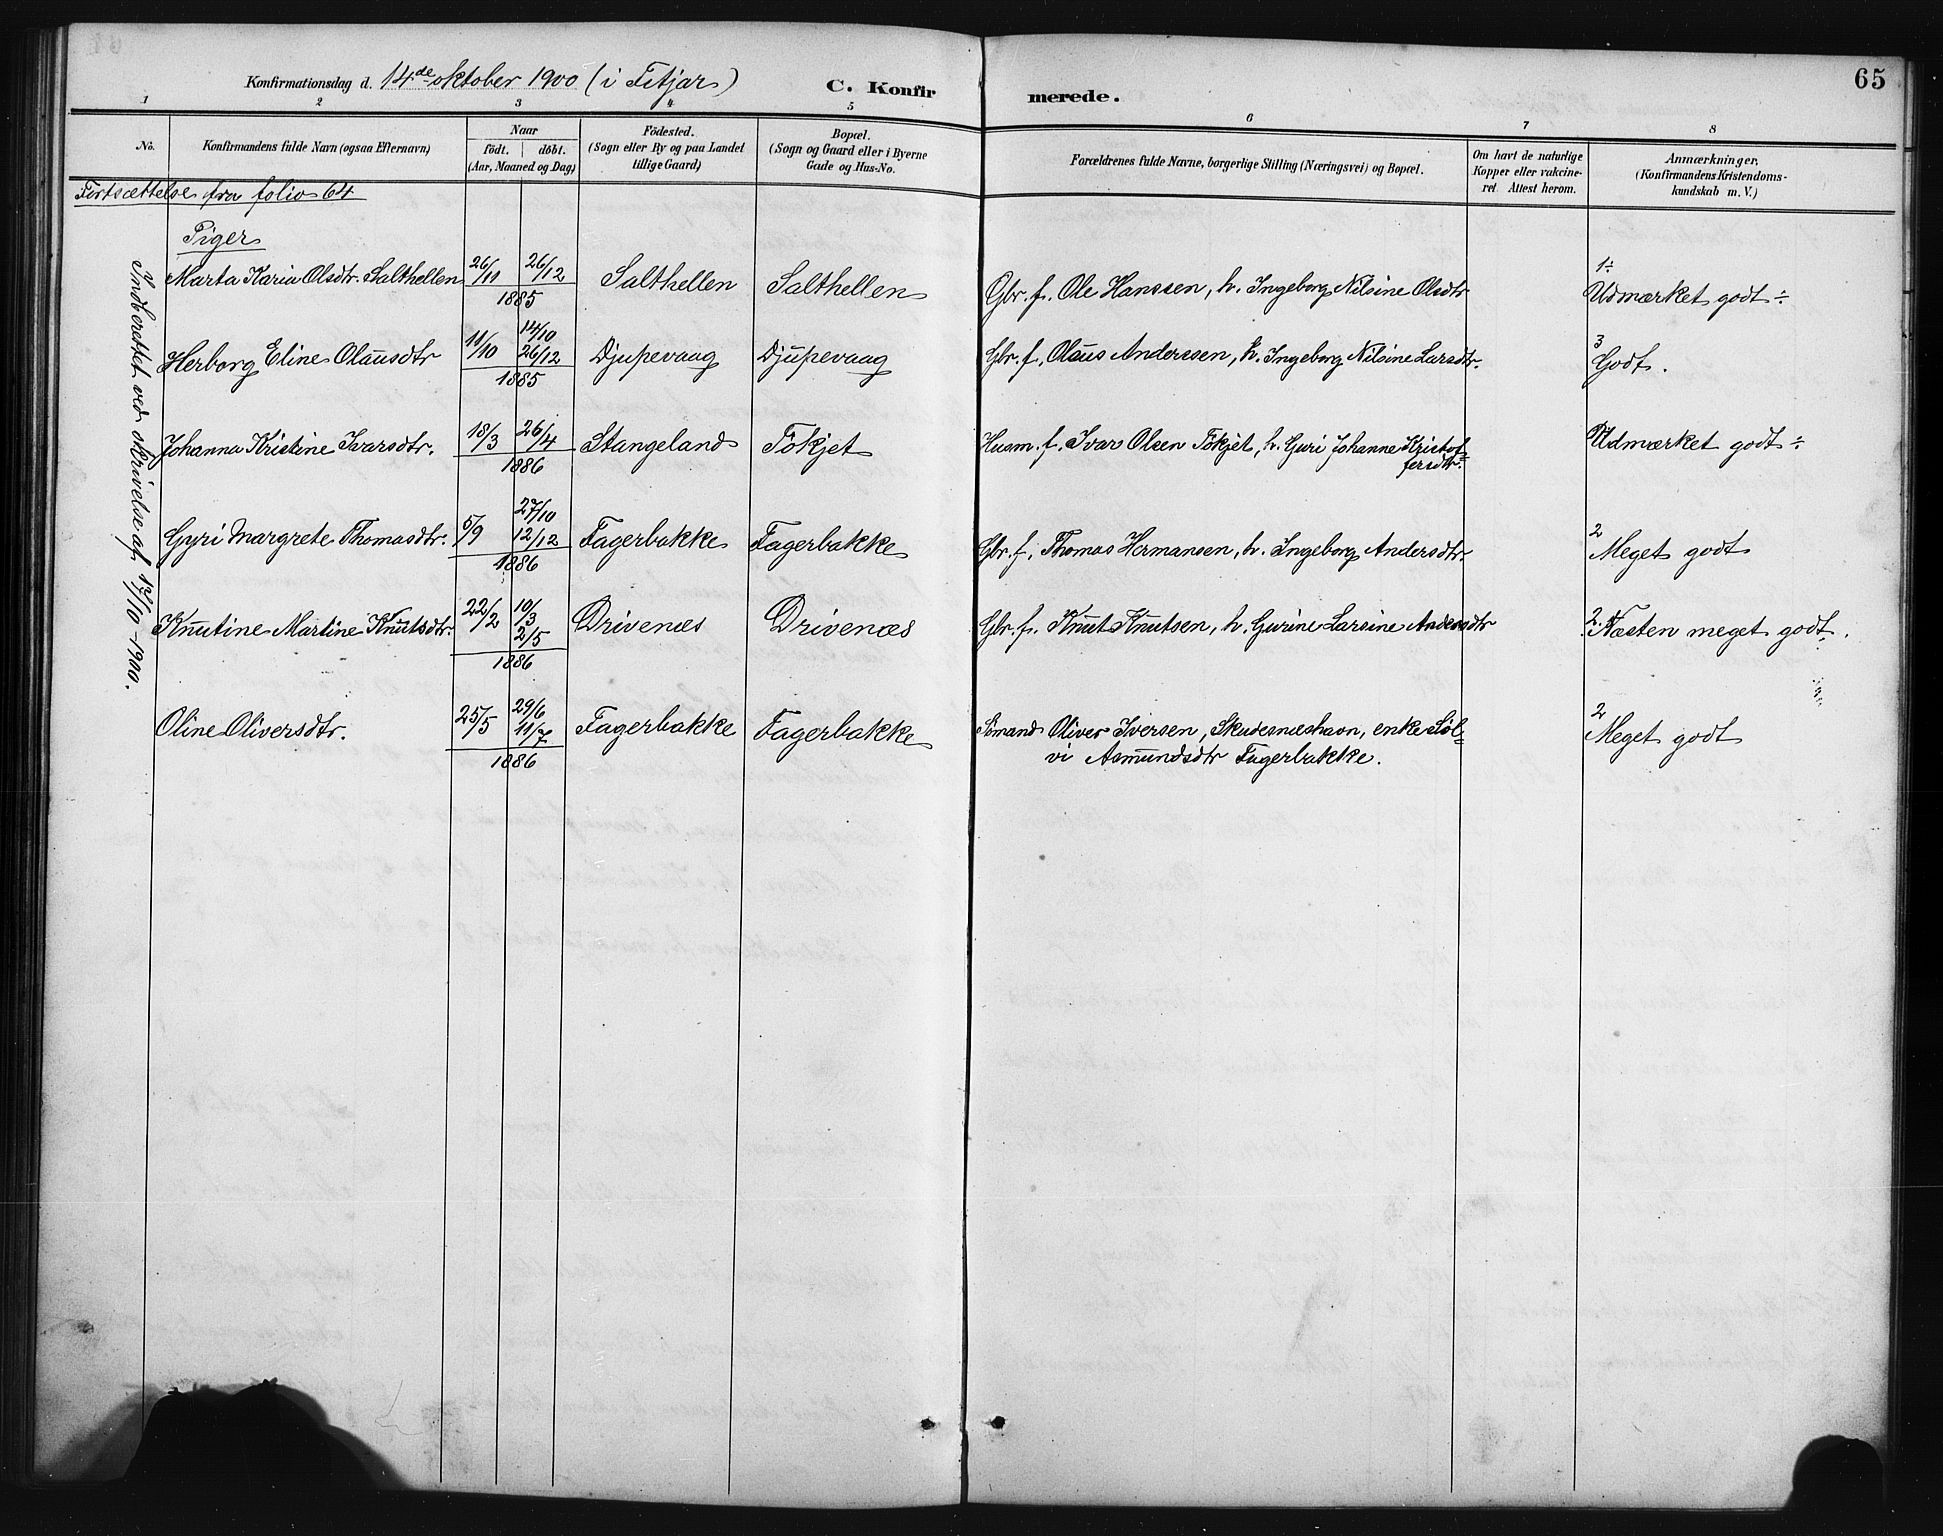 65
Konfirmationsdag d. 14de oktober 1900 (i Fitjar)
C. Konfir merede.
1 2 3 4 5 6 7 8
No.
Konfirmandens fulde Navn (ogsaa Efternavn)
Naar
födt. döbt.
(Aar, Maaned og Dag)
Födested.
(Sogn eller By og paa Landet
tillige Gaard)
Bopæl.
(Sogn og Gaard eller i Byerne
Gade og Hus-No.
Forældrenes fulde Navne, borgerlige Stilling (Næringsvei) og Bopæl.
Om havt de naturlige
Kopper eller vakcine-
ret. Attest herom.
Anmærkninger.
(Konfirmandens Kristendoms-
kundskab m. V.)
Fortsættelse fra folio 64
Piger
Indberettet ved skrivelse af /10-1900.
Marta Karia Olsdtr. Salthellen 26/11 26/12 Salthellen Salthellen Gbr. f. Ole Hanssen, h. Ingeborg Nilsine Olsdtr 1÷ Udmærket godt ÷
1885
14/10
Herborg Eline Olausdtr 11/10 26/12 Djupevaag Djupevaag Gbr. f. Olaus Anderssen, h. Ingeborg Nilsine Larsdtr. 3 Godt.
1885
Johanna Kristine Ivarsdtr. 18/3 26/4 Stangeland Tökjet Husm. f. Ivar Olsen Tökjet, h. Guri Johanne Kristof-
fersdtr. Udmærket godt ÷
1886
27/10
Gyri Margrete Thomasdtr. 5/9 12/12 Fagerbakke Fagerbakke Gbr. f. Thomas Hermansen, h. Ingeborg Andersdtr. 2 Meget godt
1886
Knutine Martine Knutsdtr. 22/2 10/3 Drivenæs Drivenæs Gbr. f. Knut Knutsen, h. Gurine Larsine Andersdtr 2 Næsten meget godt.
2/5
1886
Oline Oliversdtr. 25/5 29/6 Fagerbakke Fagerbakke Sömand Oliver Iversen, Skudesneshavn, enke Söl-
11/7 vi Asmundsdtr Fagerbakke. 2 Meget godt
1886